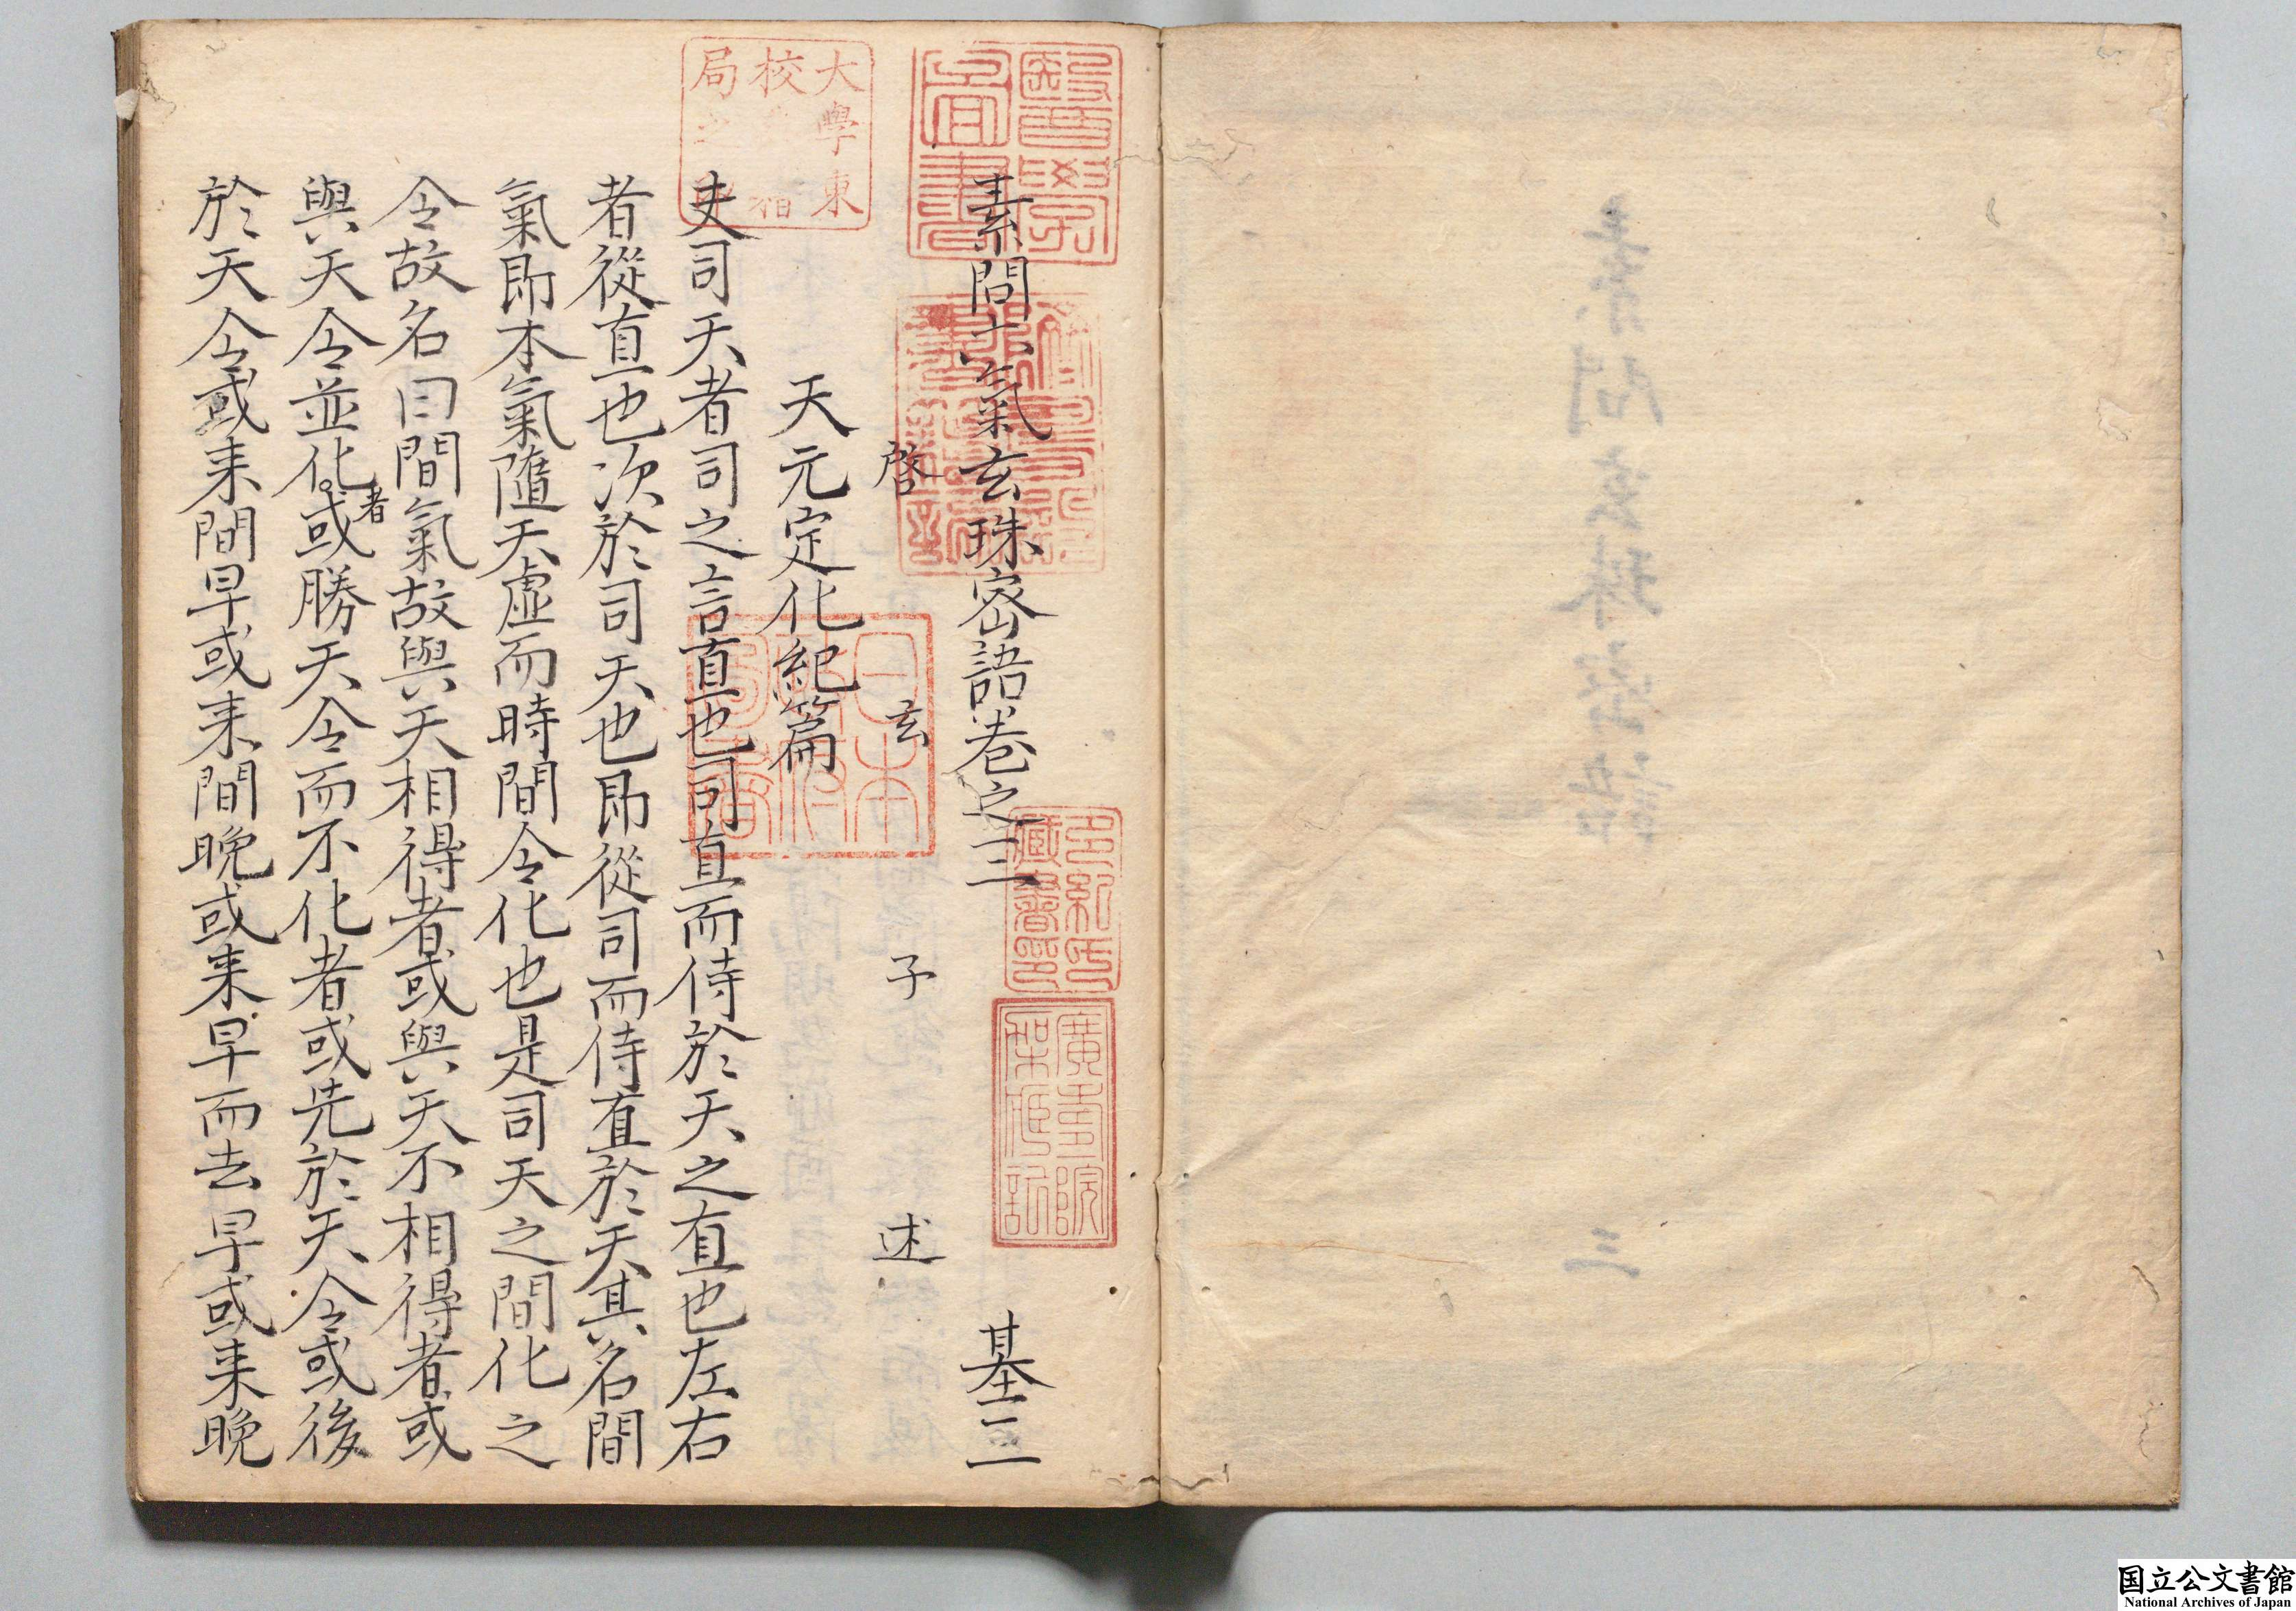 素問六氣玄珠密語卷之三　基三
啓玄子述
天元定化紀篇
夫司天者司之言直也司直而侍於天之直也左右
者從直也次於司天也即從司而侍直於天其名間
氣即本氣隨天虛而時間令化也是司天之間化之
令故名曰間氣故與天相得者或與天不相得者或
與天令並化者或勝天令而不化者或先於天令或後
於天令或来間早或来間晚或来早而去早或来晚
大學東
校
局
日本
多紀氏
藏書印
廣壽院
架藏記
醫學
圖書
素問玄珠密語
三
国立公文書館
National Archives of Japan